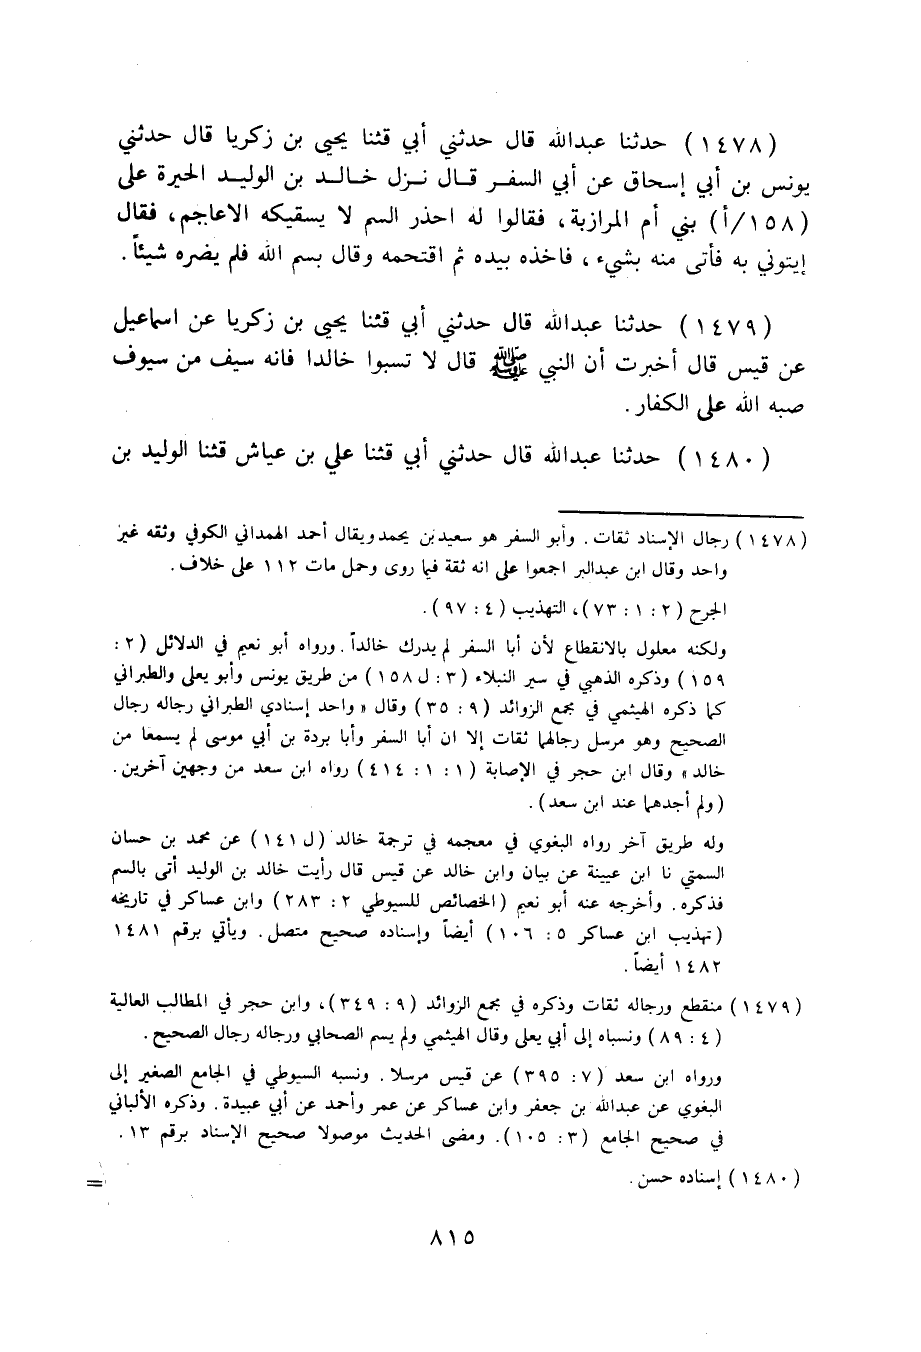 (١٤٧٨) حدثنا عبدالله قال حدثني أبي قثنا يحيى بن زكريا قال حدثني
يونس بن أبي إسحاق عن أبي السفر قال نزل خالد بن الوليد الحيرة على
(١٥٨/أ) بني أم المرازبة، فقالوا له احذر السم لا يسقيكه الاعاجم، فقال
إيتوني به فأتى منه بشيء، فاخذه بيده ثم اقتحمه وقال بسم الله فلم يضره شيئاً.
(١٤٧٩) حدثنا عبدالله قال حدثني أبي قثنا يحيى بن زكريا عن اسماعيل
عن قيس قال أخبرت أن النبي ﷺ قال لا تسبوا خالدا فانه سيف من سيوف
صبه الله على الكفار.
(١٤٨٠) حدثنا عبدالله قال حدثني أبي قثنا علي بن عياش قثنا الوليد بن
(١٤٧٨) رجال الإسناد ثقات. وأبو السفر هو سعيد بن يحمد ويقال أحمد الهمداني الكوفي وثقه غير
واحد وقال ابن عبدالبر اجمعوا على انه ثقة فيما روى وحمل مات ١١٢ على خلاف.
الجرح (٢: ١: ٧٣)، التهذيب (٤: ٩٧).
ولكنه معلول بالانقطاع لأن أبا السفر لم يدرك خالداً. ورواه أبو نعيم في الدلائل (٢:
١٥٩) وذكره الذهبي في سير النبلاء (٣: ل ١٥٨) من طريق يونس وأبو يعلى والطبراني
كما ذكره الهيثمي في مجمع الزوائد (٩: ٣٥) وقال «واحد إسنادي الطبراني رجاله رجال
الصحيح وهو مرسل رجالهما ثقات إلا ان أبا السفر وأبا بردة بن أبي موسى لم يسمعا من
خالد» وقال ابن حجر في الإصابة (١: ١: ٤١٤) رواه ابن سعد من وجهين آخرين.
(ولم أجدهما عند ابن سعد).
وله طريق آخر رواه البغوي في معجمه في ترجمة خالد (ل ١٤١) عن محمد بن حسان
السمتي نا ابن عيينة عن بيان وابن خالد عن قيس قال رأيت خالد بن الوليد أتى بالسم
فذكره. وأخرجه عنه أبو نعيم (الخصائص للسيوطي ٢: ٢٨٣) وابن عساكر في تاريخه
(تهذيب ابن عساكر ٥: ١٠٦) أيضاً وإسناده صحيح متصل. ويأتي برقم ١٤٨١
١٤٨٢ أيضاً.
(١٤٧٩) منقطع ورجاله ثقات وذكره في مجمع الزوائد (٩: ٣٤٩)، وابن حجر في المطالب العالية
(٤: ٨٩) ونسباه إلى أبي يعلى وقال الهيثمي ولم يسم الصحابي ورجاله رجال الصحيح.
ورواه ابن سعد (٧: ٣٩٥) عن قيس مرسلا. ونسبه السيوطي في الجامع الصغير إلى
البغوي عن عبدالله بن جعفر وابن عساكر عن عمر وأحمد عن أبي عبيدة. وذكره الألباني
في صحيح الجامع (٣: ١٠٥). ومضى الحديث موصولا صحيح الإسناد برقم ١٣.
(١٤٨٠) إسناده حسن.
=
٨١٥